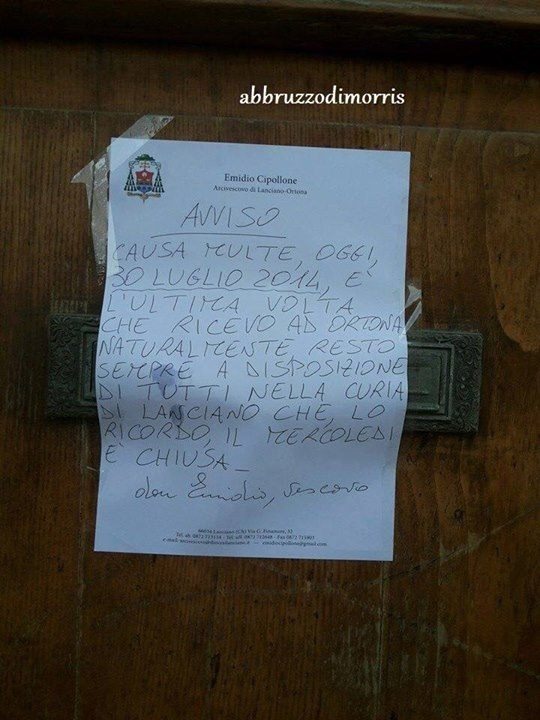 abbruzzodimorris
Emidio Cipollone
Arcivescovo di Lanciano-Ortona
AVVISO
CAUSA MULTE, OGGI,
30 LUGLIO 2014, E'
L'ULTIMA VOLTA
CHE RICEVO AD ORTONA
NATURALMENTE RESTO
SEMPRE A DISPOSIZIONE
DI TUTTI NELLA CURIA
DI LANCIANO CHE, LO
RICORDO, IL MERCOLEDI
E' CHIUSA_
don Emidio, vescovo
66034 Lanciano (Ch) Via G. Finamore, 32
Tel. ab. 0872 713134 - Tel. uff. 0872 712648 - Fax 0872
e-mail: arcivescovo@diocesilanciano.it — emidiocipollone@gmail.com